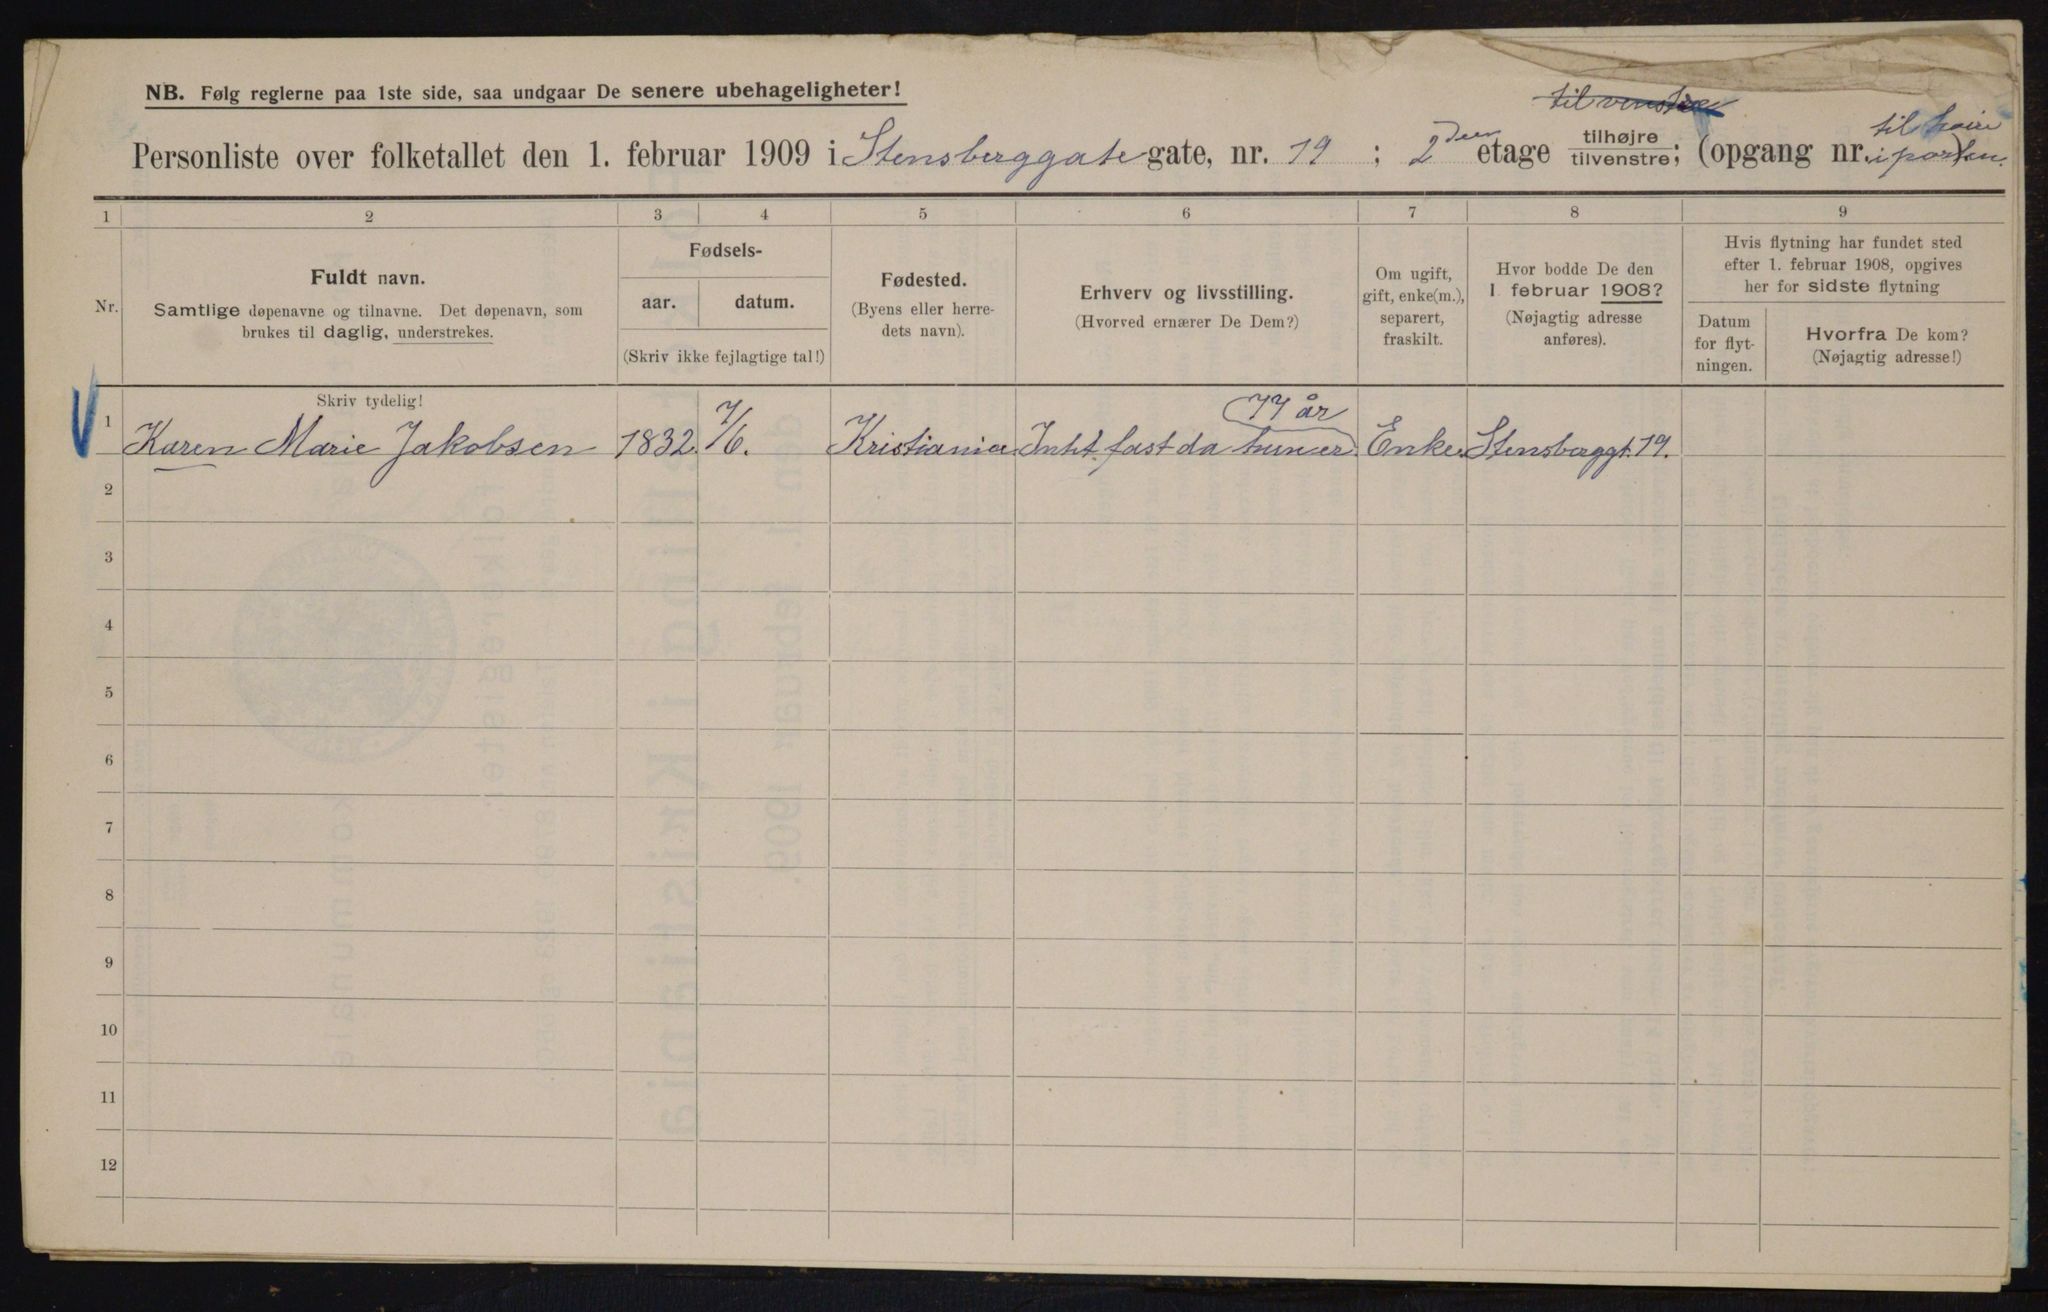 NB. Følg reglerne paa 1ste side, saa undgaar De senere ubehageligheter!
til venstre
Personliste over folketallet den 1. februar 1909 i Stensberggate gate, nr. 19 ; 2den etage tilhøjre tilvenstre; (opgang nr. til høire i porten.
1 2 3 4 5 6 7 8 9
Nr.
Fuldt navn.
Samtlige døpenavne og tilnavne. Det døpenavn, som
brukes til daglig, understrekes.
Fødsels-
aar. datum.
(Skriv ikke fejlagtige tal!)
Fødested.
(Byens eller herre-
dets navn).
Erhverv og livsstilling.
(Hvorved ernærer De Dem?)
Om ugift,
gift, enke(m.),
separert,
fraskilt.
Hvor bodde De den
1. februar 1908?
(Nøjagtig adresse
anføres).
Hvis flytning har fundet sted
efter 1. februar 1908, opgives
her for sidste flytning
Datum
for flyt-
ningen.
Hvorfra De kom?
(Nøjagtig adresse!)
Skriv tydelig!
77 år
1 Karen Marie Jakobsen 1832. 7/6. Kristiania fast da hun er Enke. Stensberggt. 19.
2
3
4
5
6
7
8
9
10
11
12